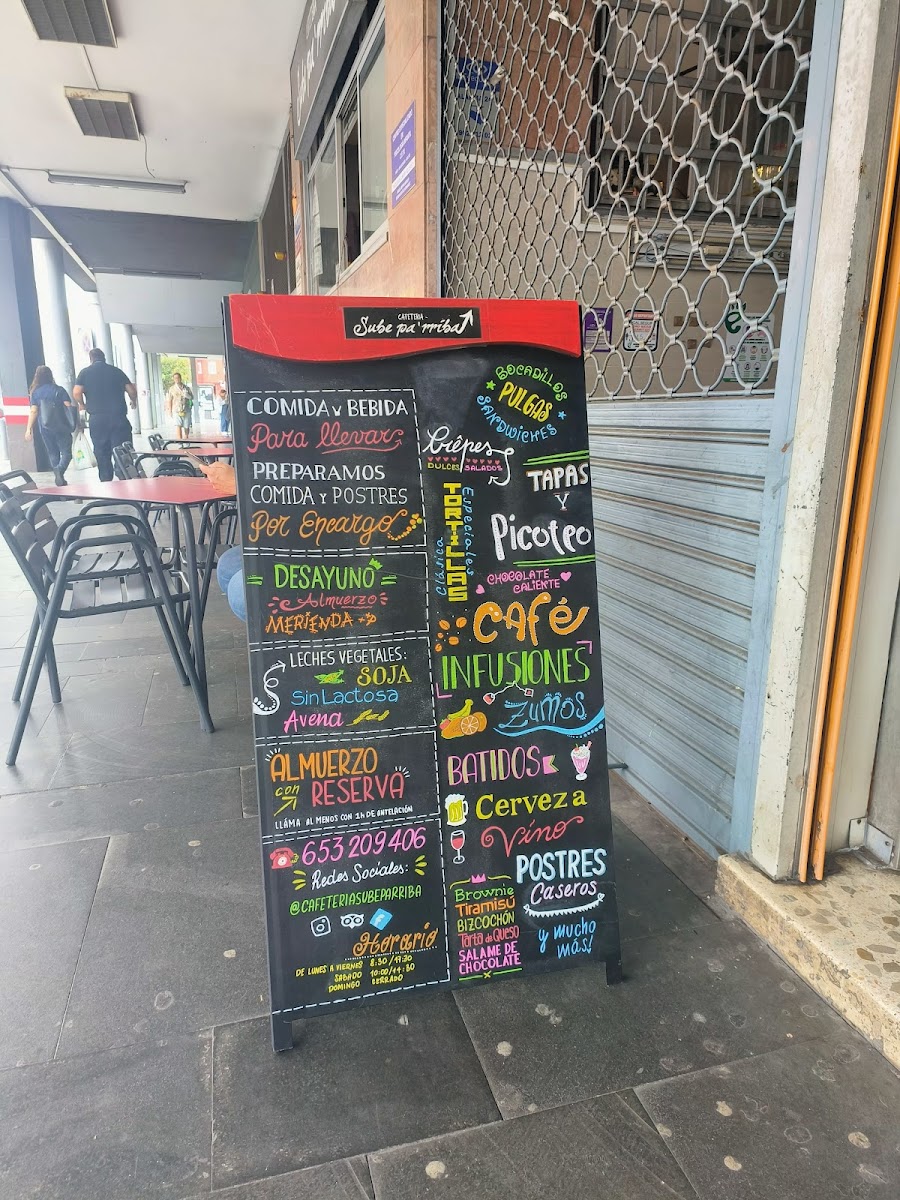 CAFETERIA -
Sube pa'rriba
COMIDA Y BEBIDA
Para llevar
PREPARAMOS
COMIDA Y POSTRES
Por Encargo
DESAYUNO
Almuerzo
MERIENDA
LECHES VEGETALES:
SOJA
Sin Lactosa
Avena
ALMUERZO
con
RESERVA
LLÁMA AL MENOS CON 1h DE ANTELACIÓN
653 209 406
Redes Sociales:
@CAFETERIASUBEPARRIBA
Horario
DE LUNES A VIERNES 8:30/19:30
SABADO
DOMINGO CERRADO
BOCADILLOS
PULGAS
SANDWICHES
Crêpes
DULCES SALADOS
TORTILLAS
Clásica
Especiales
TAPAS
Y
Picoteo
CHOCOLATE
CALIENTE
Café
INFUSIONES
Zumos
BATIDOS
Cerveza
Vino
POSTRES
Caseros
Brownie
Tiramisú
BIZCOCHÓN
Tarta de Queso
SALAME DE
CHOCOLATE
y mucho
más!